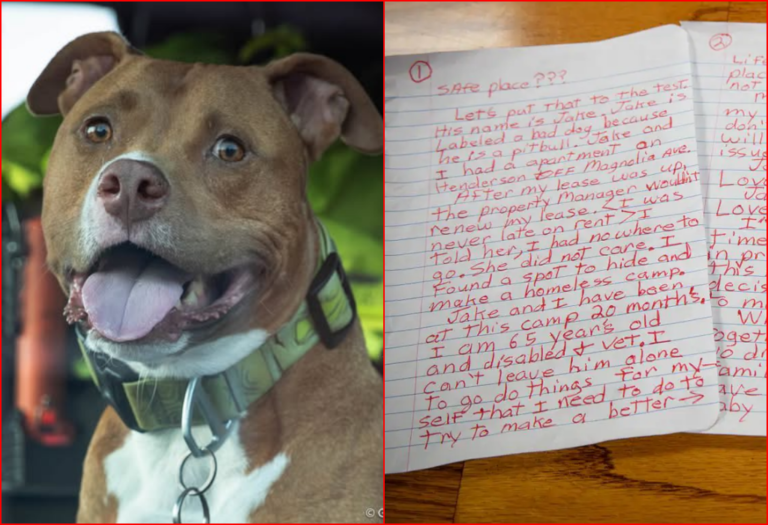 ①
SAfe place???
Let's put that to the test.
His name is Jake. Jake is
Labeled a bad dog because
he is a pitbull. Jake and
I had a apartment on
Henderson OFF Magnolia Ave.
After my lease was up,
the property Manager wouldn't
renew my lease. <I was
never late on rent> I
told her, I had nowhere to
go. She did not care. I
Found a spot to hide and
make a homeless camp.
Jake and I have been
at this camp 20 months.
I am 65 years old
and disabled & vet. I
can't leave him alone
to go do things for my-
self that I need to do to
try to make a better →
②
Life
plac
not
my
don'
will
issu
Love
Ja
Love
I
time
in pr
this
decis
to m
W
oget
o di
ami
ave
aby
© G